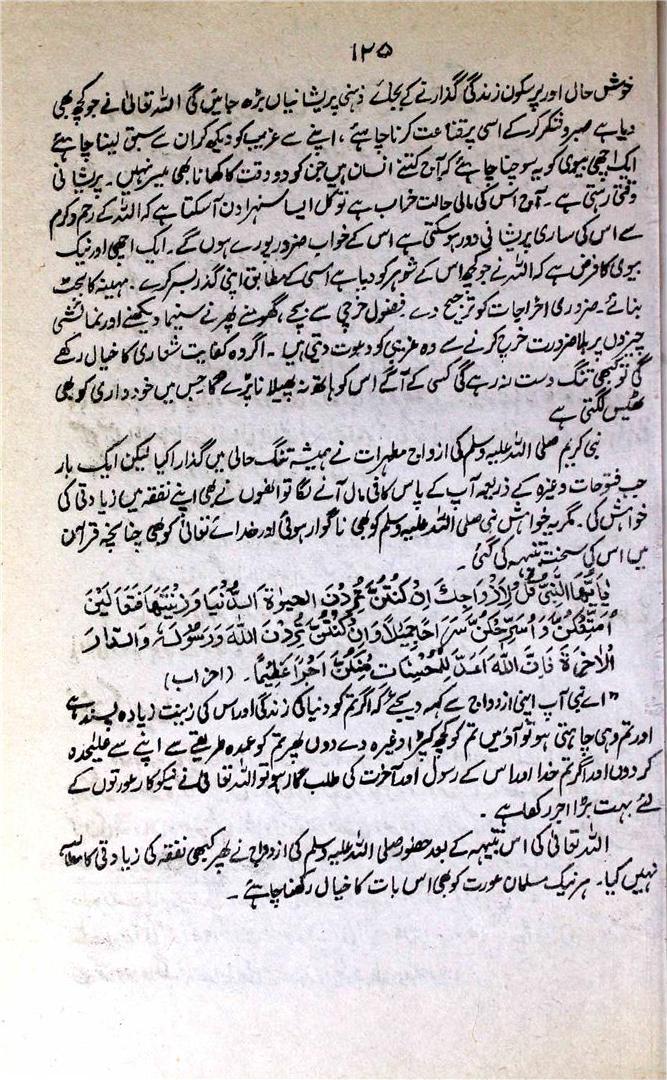 ۱۲۵
خوش حال اور پرسکون زندگی گذارنے کے بجائے ذہنی پریشانیاں بڑھ جائیں گی اللہ تعالیٰ نے جو کچھ بھی
دیا ہے صبر و شکر کرکے اسی پر قناعت کرنا چاہیے، اپنے سے غریب کو دیکھ کر ان سے سبق لینا چاہیئے
ایک اچھی بیوی کو یہ سوچنا چاہیئے کہ آج کتنے انسان ہیں جن کو دو وقت کا کھانا بھی میسر نہیں۔ پریشانی
وقتی رہتی ہے۔ آج اس کی مالی حالت خراب ہے تو کل ایسا سنہرا دن آسکتا ہے کہ اللہ کے رحم و کرم
سے اس کی ساری پریشانی دور ہوسکتی ہے اس کے خواب ضرور پورے ہوں گے۔ ایک اچھی اور نیک
بیوی کا فرض ہے کہ اللہ نے جو کچھ اس کے شوہر کو دیا ہے اُسی کے مطابق اپنی گذر بسر کرے۔ مہینہ کا بجٹ
بنائے۔ ضروری اخراجات کو ترجیح دے۔ فضول خرچی سے بچے، گھومنے پھرنے سنیما دیکھنے اور نمائشی
چیزوں پر بلاضرورت خرچ کرنے سے وہ غریبی کو دعوت دیتی ہیں۔ اگر وہ کفایت شعاری کا خیال رکھے
گی تو کبھی تنگ دست نہ رہے گی کسی کے آگے اس کو ہاتھ نہ پھیلانا پڑے گا جس میں خودداری کو بھی
ٹھیس لگتی ہے
نبی کریم صلی اللہ علیہ وسلم کی ازواج مطہرات نے ہمیشہ تنگ حالی میں گذارا کیا لیکن ایک بار
جب فتوحات وغیرہ کے ذریعہ آپ کے پاس کافی مال آنے لگا تو انھوں نے بھی اپنے نفقہ میں زیادتی کی
خواہش کی۔ مگر یہ خواہش نبی صلی اللہ علیہ وسلم کو بھی ناگوار ہوئی اور خدائے تعالیٰ کو بھی چنانچہ قرآن
میں اس کی سخت تنبیہ کی گئی۔
یٰاَیُّهَا النَّبِیُّ قُلْ لِاَزْوَاجِكَ اِنْ كُنْتُنَّ تُرِدْنَ الْحَیٰوۃَ الدُّنْیَا وَزِیْنَتَهَا فَتَعَالَیْنَ
اُمَتِّعْكُنَّ وَ اُسَرِّحْكُنَّ سَرَاحًا جَمِیْلًا وَاِنْ كُنْتُنَّ تُرِدْنَ اللّٰهَ وَرَسُوْلَهٗ وَالدَّارَ
الْاٰخِرَۃَ فَاِنَّ اللّٰهَ اَعَدَّ لِلْمُحْسِنَاتِ مِنْكُنَّ اَجْرًا عَظِیْمًا۔ (احزاب)
"اے نبی آپ اپنی ازدواج سے کہہ دیجئے کہ اگر تم کو دنیا کی زندگی اور اس کی زینت زیادہ پسند ہے
اور تم وہی چاہتی ہو تو آؤ میں تم کو کچھ کپڑا وغیرہ دے دوں پھر تم کو عمدہ طریقے سے اپنے سے علیٰحدہ
کردوں اور اگر تم خدا اور اس کے رسول اور آخرت کی طلب گار ہو تو اللہ تعالیٰ نے نیکوکار عورتوں کے
لئے بہت بڑا اجر رکھا ہے۔
اللہ تعالیٰ کی اس تنبیہہ کے بعد حضور صلی اللہ علیہ وسلم کی ازدواج نے پھر کبھی نفقہ کی زیادتی کا مطالبہ
نہیں کیا۔ ہر نیک مسلمان عورت کو بھی اس بات کا خیال رکھنا چاہیئے۔